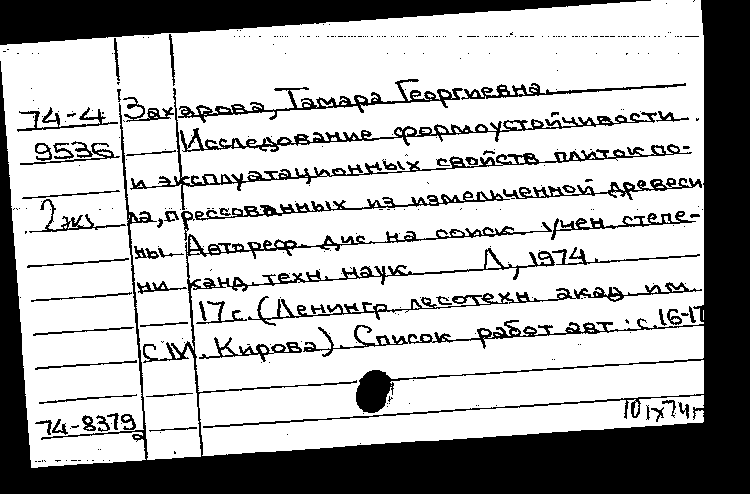 74-4 Захарова, Тамара Георгиевна.
9536 Исследование формоустойчивости
и эксплуатационных свойств плиток по-
2 экз. ла, прессованных из измельченной древеси
ны. Автореф. дис. на соиск. учен. степе-
ни канд. техн. наук. Л., 1974.
17 с. (Ленингр. лесотехн. акад. им.
С.М. Кирова). Список работ авт.: с. 16-17
74-8379
10 IX 74 г